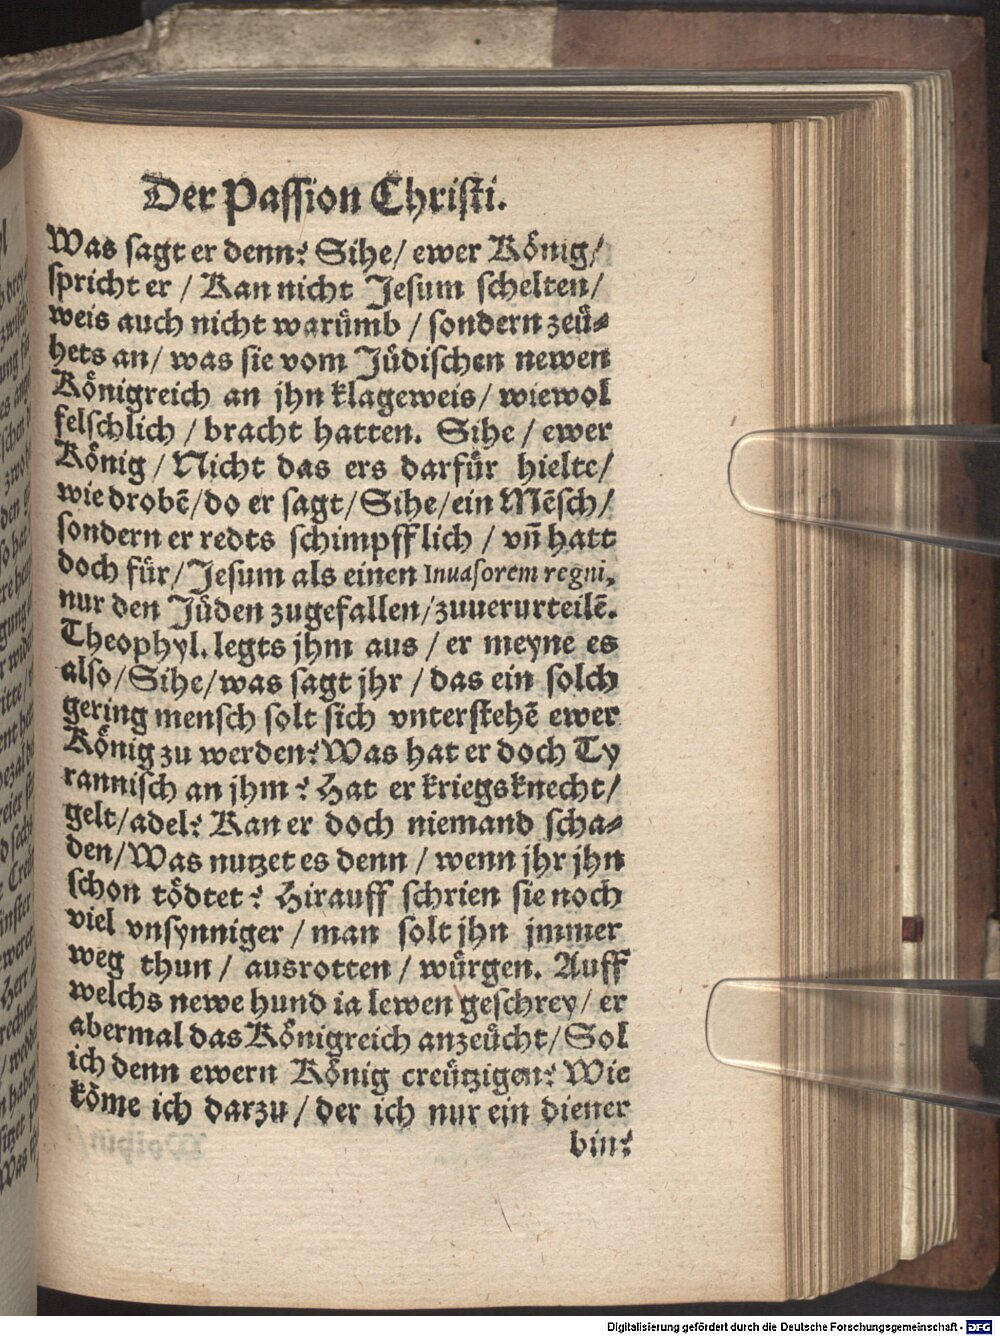 Der Passion Christi.
Was sagt er denn? Sihe/ ewer König/
spricht er / Kan nicht Jesum schelten/
weis auch nicht warümb / sondern zeü-
hets an/ was sie vom Jüdischen newen
Königreich an jhn klageweis/ wiewol
felschlich / bracht hatten. Sihe / ewer
König / Nicht das ers darfür hielte/
wie drobē/do er sagt/Sihe/ein Mēsch/
sondern er redts schimpfflich / vn̄ hatt
doch für/Jesum als einen Inuasorem regni,
nur den Jüden zugefallen/zuuerurteilē.
Theophyl. legts jhm aus / er meyne es
also/Sihe/was sagt jhr / das ein solch
gering mensch solt sich vnterstehē ewer
König zu werden? Was hat er doch Ty
rannisch an jhm? Hat er kriegsknecht/
gelt/adel? Kan er doch niemand scha-
den/Was nutzet es denn / wenn jhr jhn
schon tödtet? Hirauff schrien sie noch
viel vnsynniger / man solt jhn jmmer
weg thun / ausrotten / würgen. Auff
welchs newe hund ia lewen geschrey/ er
abermal das Königreich anzeücht/Sol
ich denn ewern König creützigen? Wie
kōme ich darzu / der ich nur ein diener
bin?
Digitalisierung gefördert durch die Deutsche Forschungsgemeinschaft - DFG